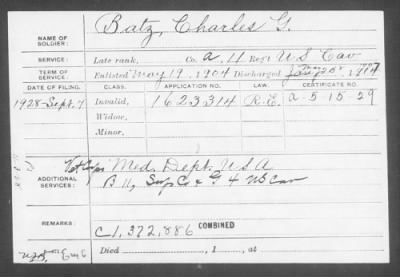 NAME OF SOLDIER: Batz, Charles G.
SERVICE: Late rank, Co. A, 11 Regt U S Cav
TERM OF SERVICE: Enlisted May 19, 1904 Discharged
DATE OF FILING. CLASS. APPLICATION NO. LAW. CERTIFICATE NO.
1928-Sept. 7 Invalid, 1623314 R.E. a-5-15-29
Widow,
Minor,
ADDITIONAL SERVICES: Vet Corps Med. Dept. U.S.A
B 11, Sup Co & G 4 US Cav
REMARKS: C1,372,886 COMBINED
Died , 1 , at